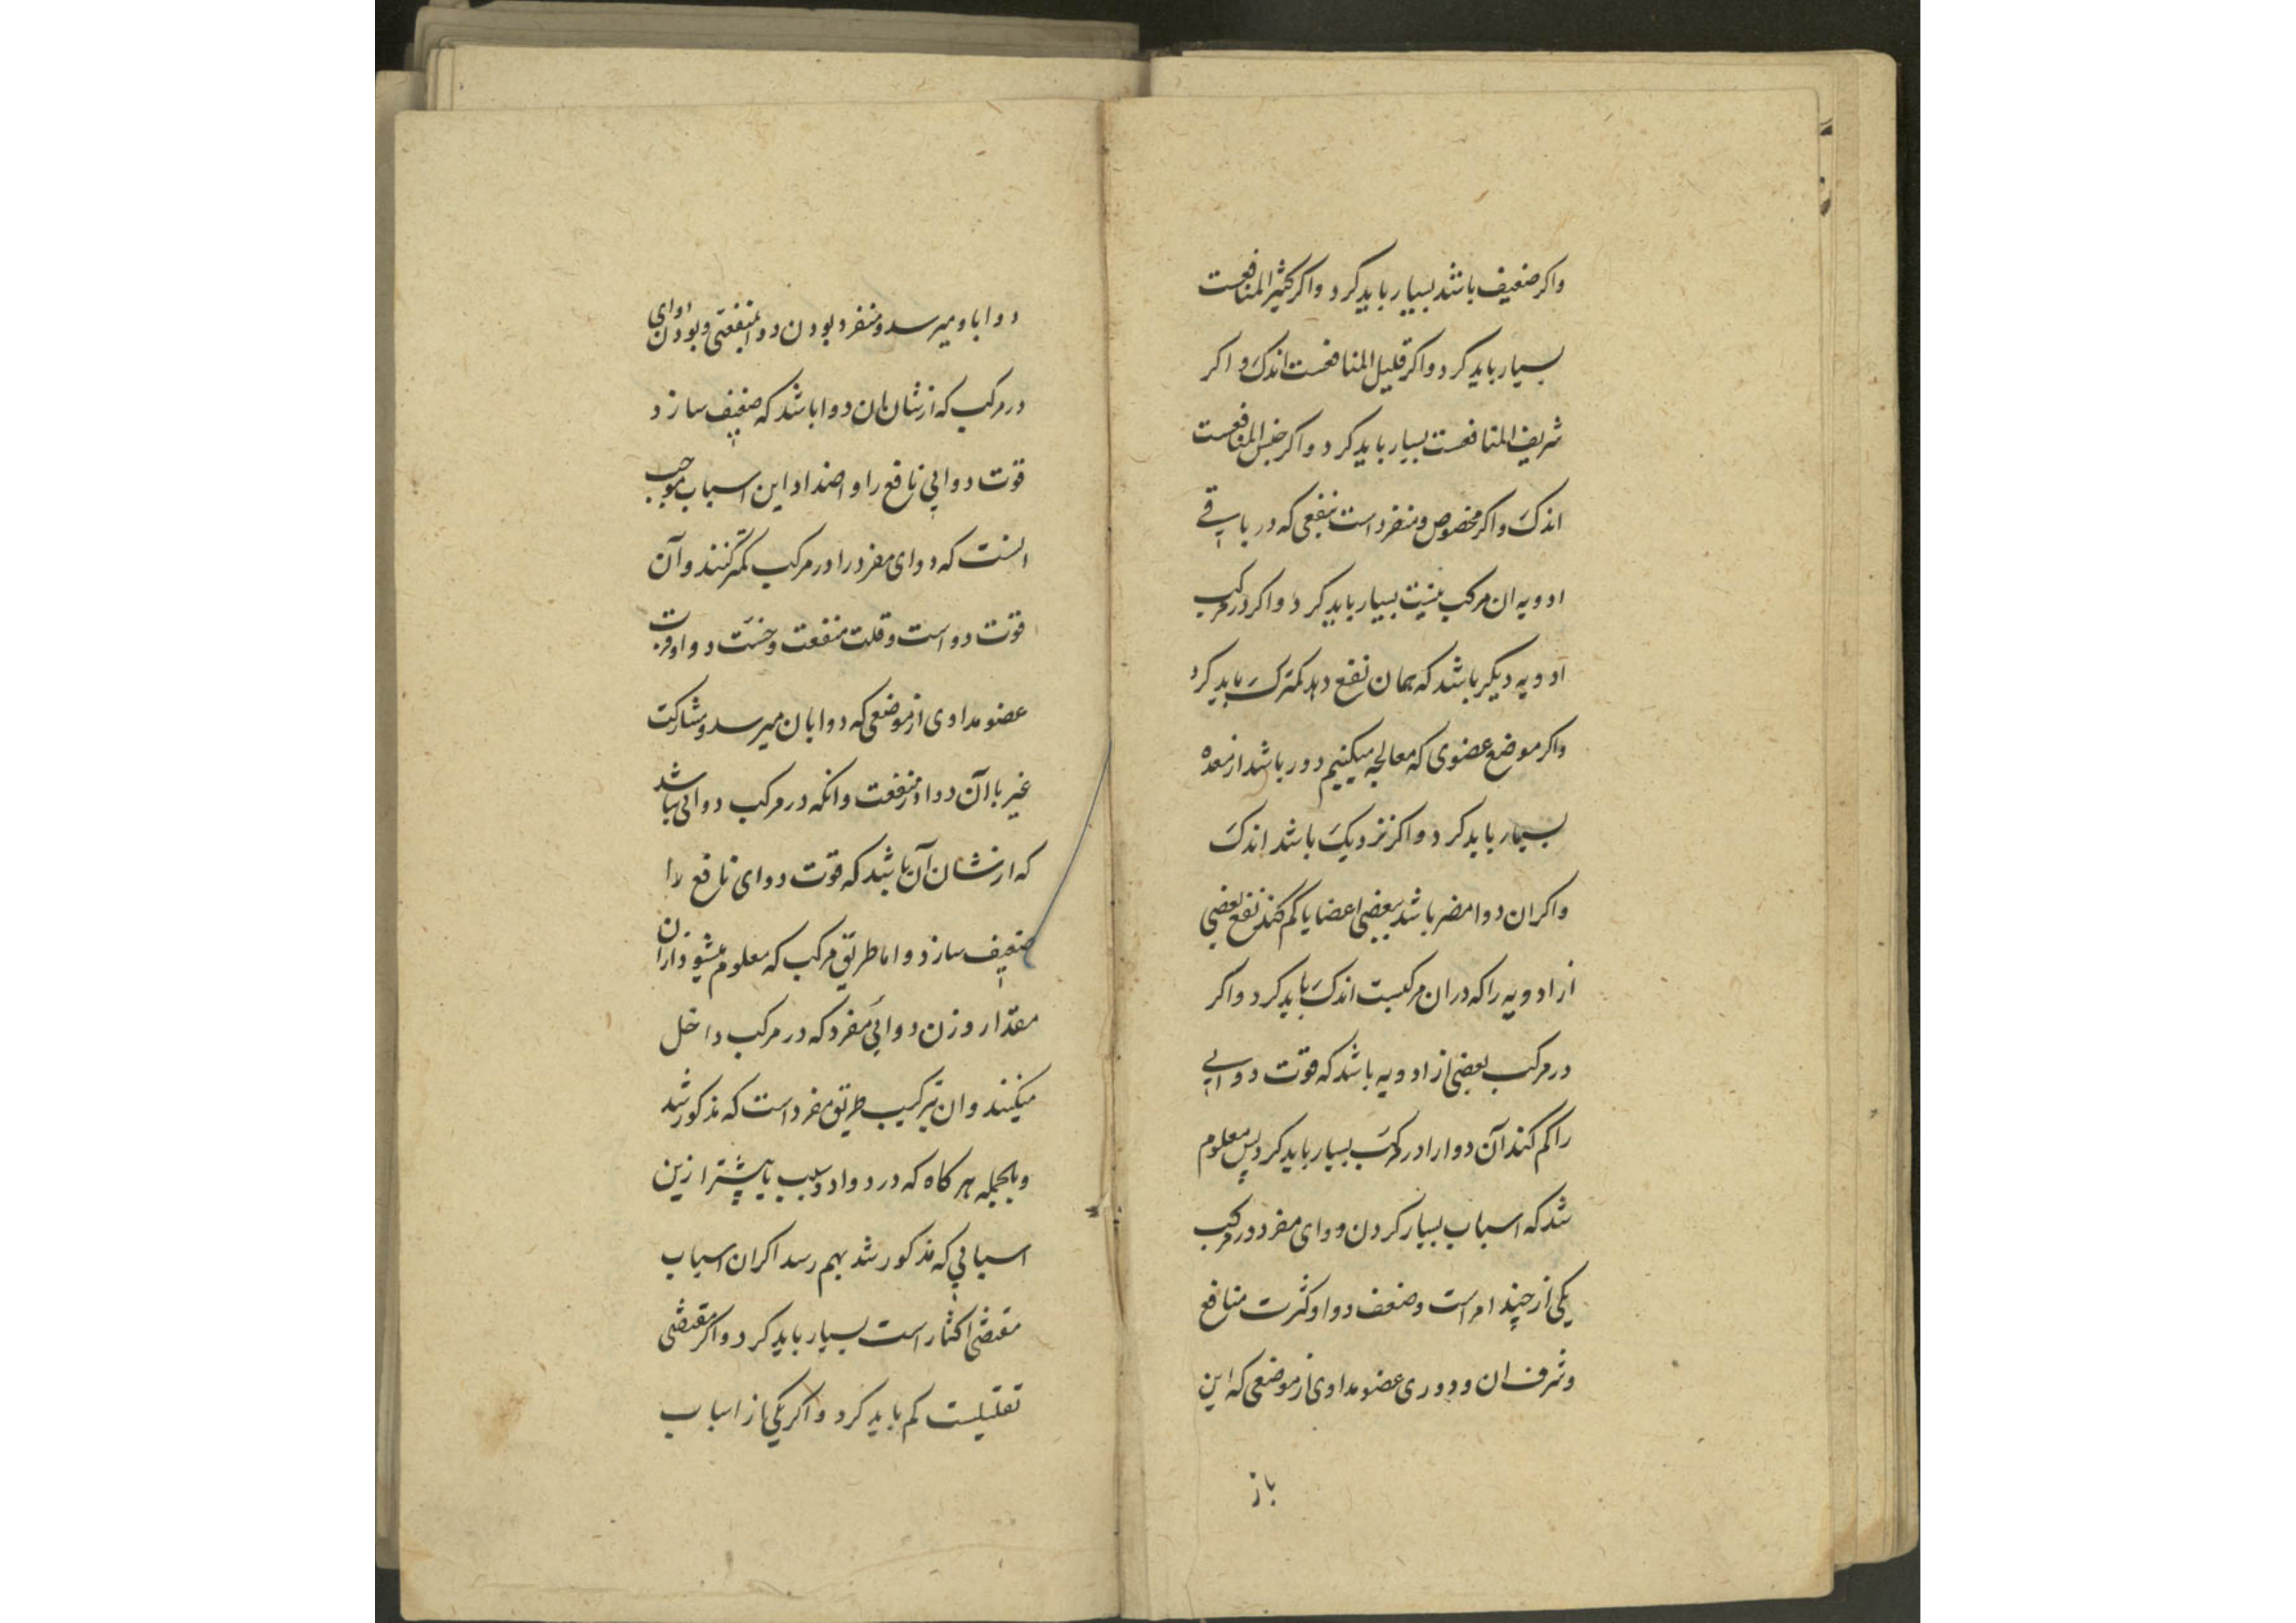 واکر ضعیف باشد بسیار باید کرد واکر کثیر المنافعست
بسیار باید کرد واکر قلیل المنافعست اندک و اکر
شریف المنافعست بسیار باید کرد واکر خسیس المنافعست
اندک واکر مخصوص و منفرد است بنفعی که در باقے
ادویه ان مرکب نیست بسیار باید کرد واکر در مرکب
ادویه دیکر باشد که همان نفع دهد کمترک باید کرد
واکر موضع عضوی که معالجه میکنیم دور باشد از معده
بسیار باید کرد واکر نزدیک باشد اندک
واکر ان دوا مضر باشد ببعضی اعضا یا کم کند نفع بعضی
از ادویه را که دران مرکبست اندک باید کرد واکر
در مرکب بعضی از ادویه باشد که قوت دوایی
را کم کند آن دوا را در مرکب بسیار باید کرد پس معلوم
شد که اسباب بسیار کردن دوای مفرد در مرکب
یکی از چند امر است وضعف دوا وکثرت منافع
وشرف ان و دوری عضو مداوی از موضعی که این
باز
دوا باو میرسد و منفرد بودن دوا بمنفعتی و بودن دوای
در مرکب که از شان ان دوا باشد که ضعیف سازد
قوت دوایی نافع را و اضداد این اسباب موجب
انست که دوای مفرد را در مرکب کمتر کنند و آن
قوت دواست و قلت منفعت و خست دوا و قربت
عضو مداوی از موضعی که دوا بان میرسد و مشارکت
غیر با آن دوا در منفعت و انکه در مرکب دوائی باشد
که از شان آن باشد که قوت دوای نافع را
ضعیف سازد و اما طریق مرکب که معلوم میشود ازان
مقدار وزن دوایی مفرد که در مرکب داخل
میکنند و ان ترکیب طریق مفرد است که مذکور شد
وبالجمله هر کاه که در دوا دو سبب یا بیشتر ازین
اسبابی که مذکور شد بهم رسد اکر ان اسباب
مقتضی اکثار است بسیار باید کرد و اکر مقتضی
تقلیلست کم باید کرد و اکر یکی از اسباب